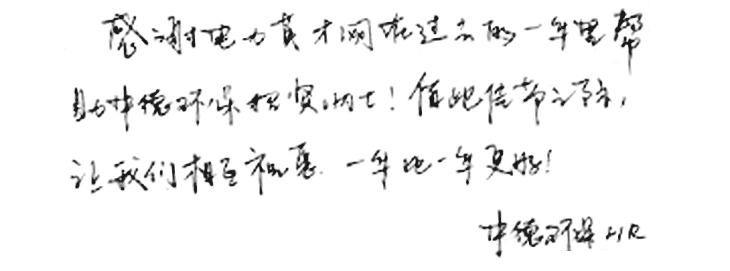 感谢电力英才网在过去的一年里帮
助坤德环保招贤纳士！值此佳节之际，
让我们相互祝愿 一年比一年更好！
坤德环保HR